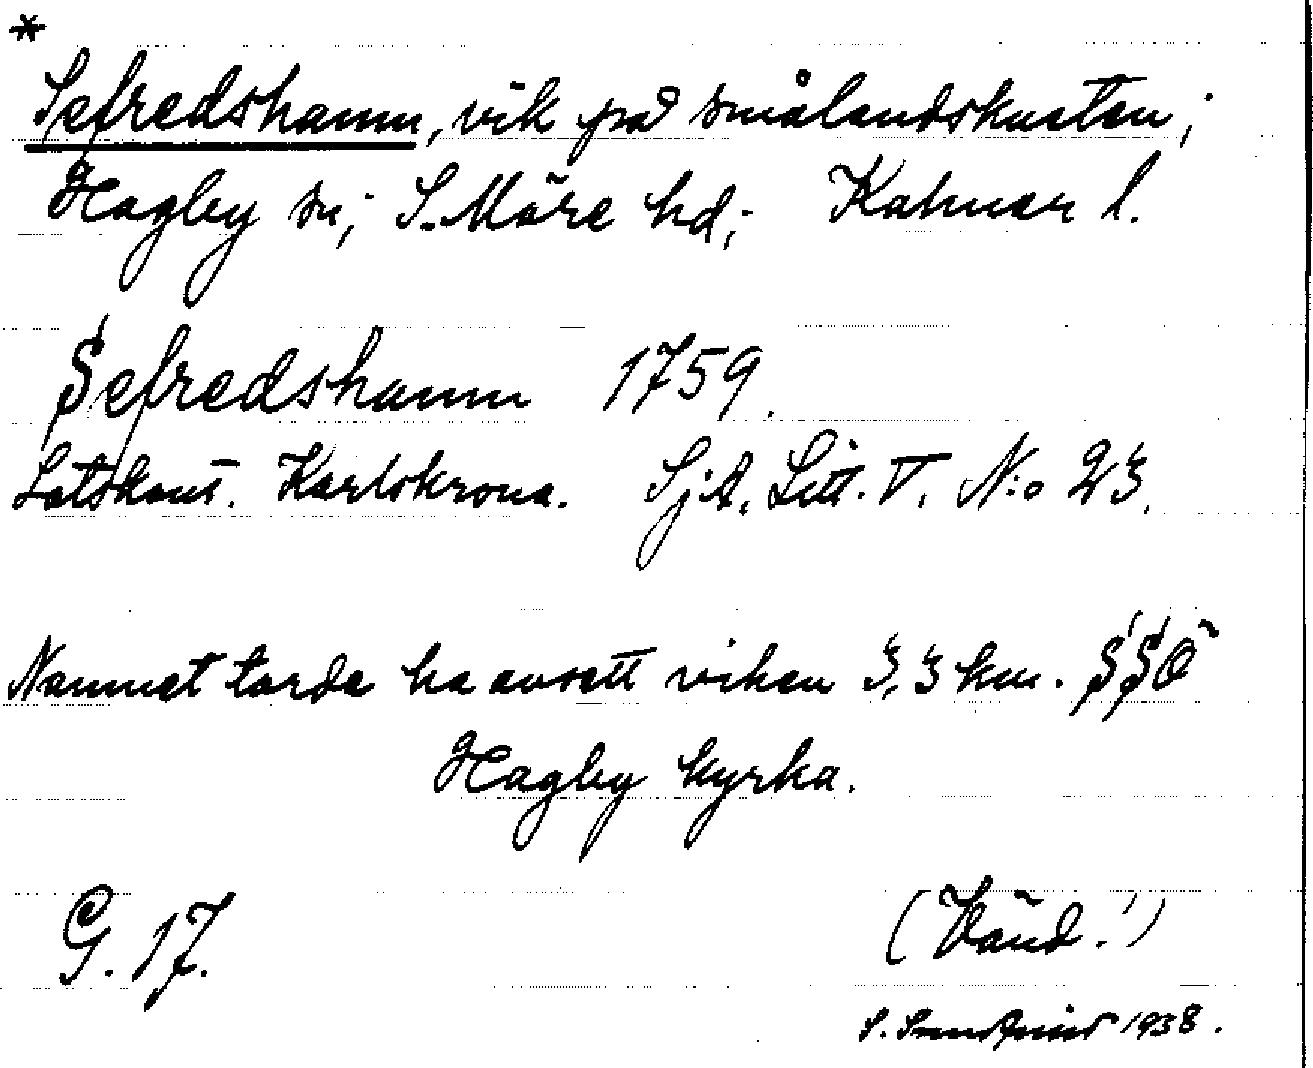 *
Sefredshamn, vik på Smålandskusten;
Hagby sn; S. Möre hd; Kalmar l.
Sefredshamn 1759.
Lotskont. Karlskrona. SjA. Litt. V. N:o 23.
Namnet torde ha avsett viken 3,3 km. SSÖ
Hagby kyrka.
G. 17. (Vänd!)
S. 1938.